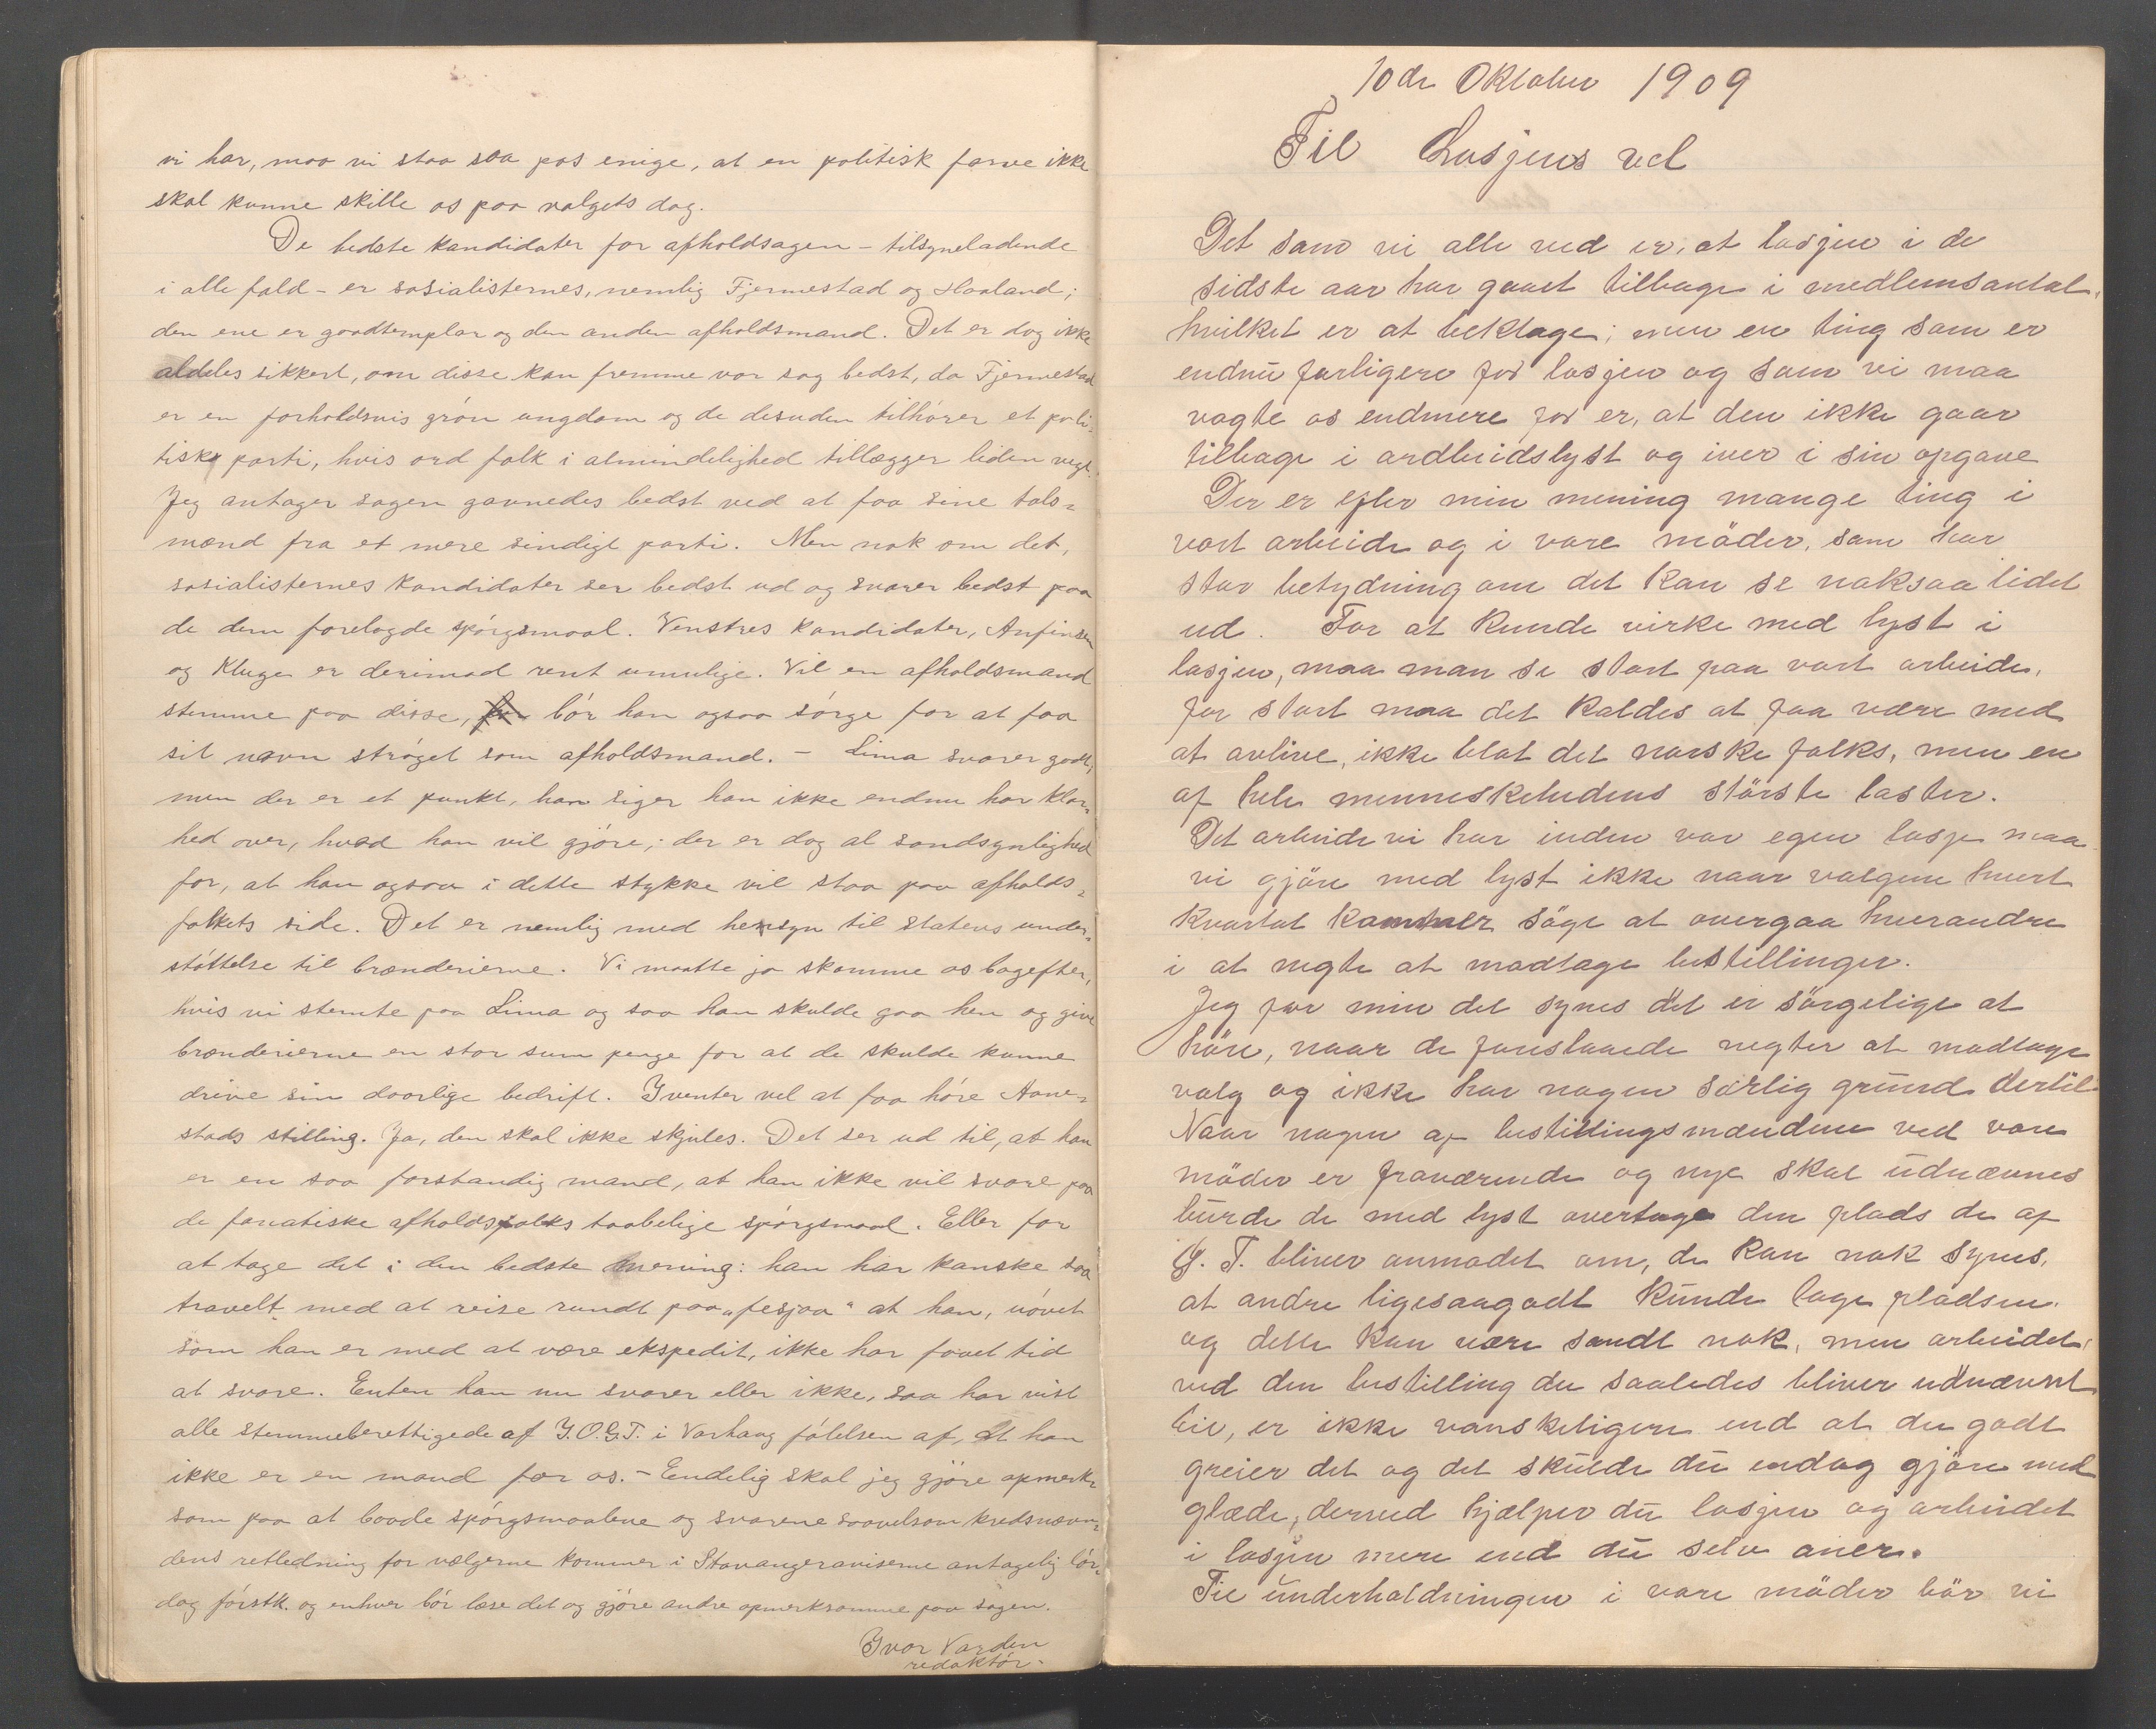 vi har, maa vi staa saa pas enige, at en politisk farve ikke
skal kunne skille os paa valgets dag.
De bedste kandidater for afholdsagen – tilsyneladende
i alle fald – er sosialisternes, nemlig Fjermestad og Haaland;
den ene er goodtemplar og den anden afholdsmand. Det er dog ikke
aldeles sikkert, om disse kan fremme vor sag bedst, da Fjermestad
er en forholdsvis grön ungdom og de desuden tilhörer et poli-
tisk parti, hvis ord folk i almindelighed tillægger liden vegt.
Jeg antager sagen gavnedes bedst ved at faa sine tals-
mænd fra et mere sindigt parti. Men nok om det,
sosialisternes kandidater ser bedst ud og svarer bedst paa
de dem forelagde spörgsmaal. Venstres kandidater, Anfinsen
og Kluge er derimod rent umulige. Vil en afholdsmand
stemme paa disse, bör han ogsaa sörge for at faa
sit navn ströget som afholdsmand. – Lima svarer godt,
men der er et punkt, han siger han ikke endnu har klar-
hed over, hvad han vil gjöre; der er dog al sandsynlighed
for, at han ogsaa i dette stykke vil staa paa afholds-
folkets side. Det er nemlig med hensyn til statens under-
stöttelse til brænderierne. Vi maatte jo skamme os bagefter,
hvis vi stemte paa Lima og saa han skulde gaa hen og give
brænderierne en stor sum penge for at de skulde kunne
drive sin daarlige bedrift. I venter vel at faa höre Aane-
stads stilling. Ja, den skal ikke skjules. Det ser ud til, at han
er en saa forstandig mand, at han ikke vil svare paa
de fanatiske afholdsfolks taabelige spörgsmaal. Eller for
at tage det i den bedste mening: han har kanske saa
travelt med at reise rundt paa „fesjaa“ at han, uövet
som han er med at være ekspedit, ikke har faaet tid
at svare. Enten han nu svarer eller ikke, saa har vist
alle stemmeberettigede af I.O.G.T. i Varhaug fölelsen af, at han
ikke er en mand for os. – Endelig skal jeg gjöre opmerk-
som paa at baade spörgsmaalene og svarene saavelsom kredsnævn-
dens retledning for vælgerne kommer i Stavangeraviserne antagelig lör-
dag förstk. og enhver bör læse det og gjöre andre opmerksomme paa sagen.
Ivar Varden
redaktör.
10de Oktober 1909
Til Losjens vel
Det som vi alle ved er, at losjen i de
sidste aar har gaaet tilbage i medlemsantal,
hvilket er at beklage; men en ting som er
endnu farligere for losjen og som vi maa
vogte os endmere for er, at den ikke gaar
tilbage i ardbeidslyst og iver i sin opgave
Der er efter min mening mange ting i
vort arbeide og i vore möder, som har
stor betydning om det kan se noksaa lidet
ud. For at kunde virke med lyst i
losjen, maa man se stort paa vort arbeide,
for stort maa det kaldes at faa være med
at avlive, ikke blot det norske folks, men en
af hele menneskehedens störste laster.
Det arbeide vi har inden vor egen losje maa
vi gjöre med lyst ikke naar valgene hvert
kvartal kommer söge at overgaa hverandre
i at negte at modtage bestillinger.
Jeg for min del synes det er sörgelige at
höre, naar de foreslaaede negter at modtage
valg og ikke har nogen særlig grund dertil
Naar nogen af bestillingsmændene ved vore
möder er fraværende og nye skal udnævnes
burde de med lyst overtage den plads de af
G. T. bliver anmodet om, de kan nok synes,
at andre ligesaagodt kunde tage pladsen.
og dette kan være sandt nok, men arbeidet
ved den bestilling du saaledes bliver udnævnt
til, er ikke vanskeligere end at du godt
greier det og det skulde du endog gjöre med
glæde, derved hjælper du losjen og arbeidet
i losjen mere end du selv aner.
Til underholdningen i vore möder bör vi